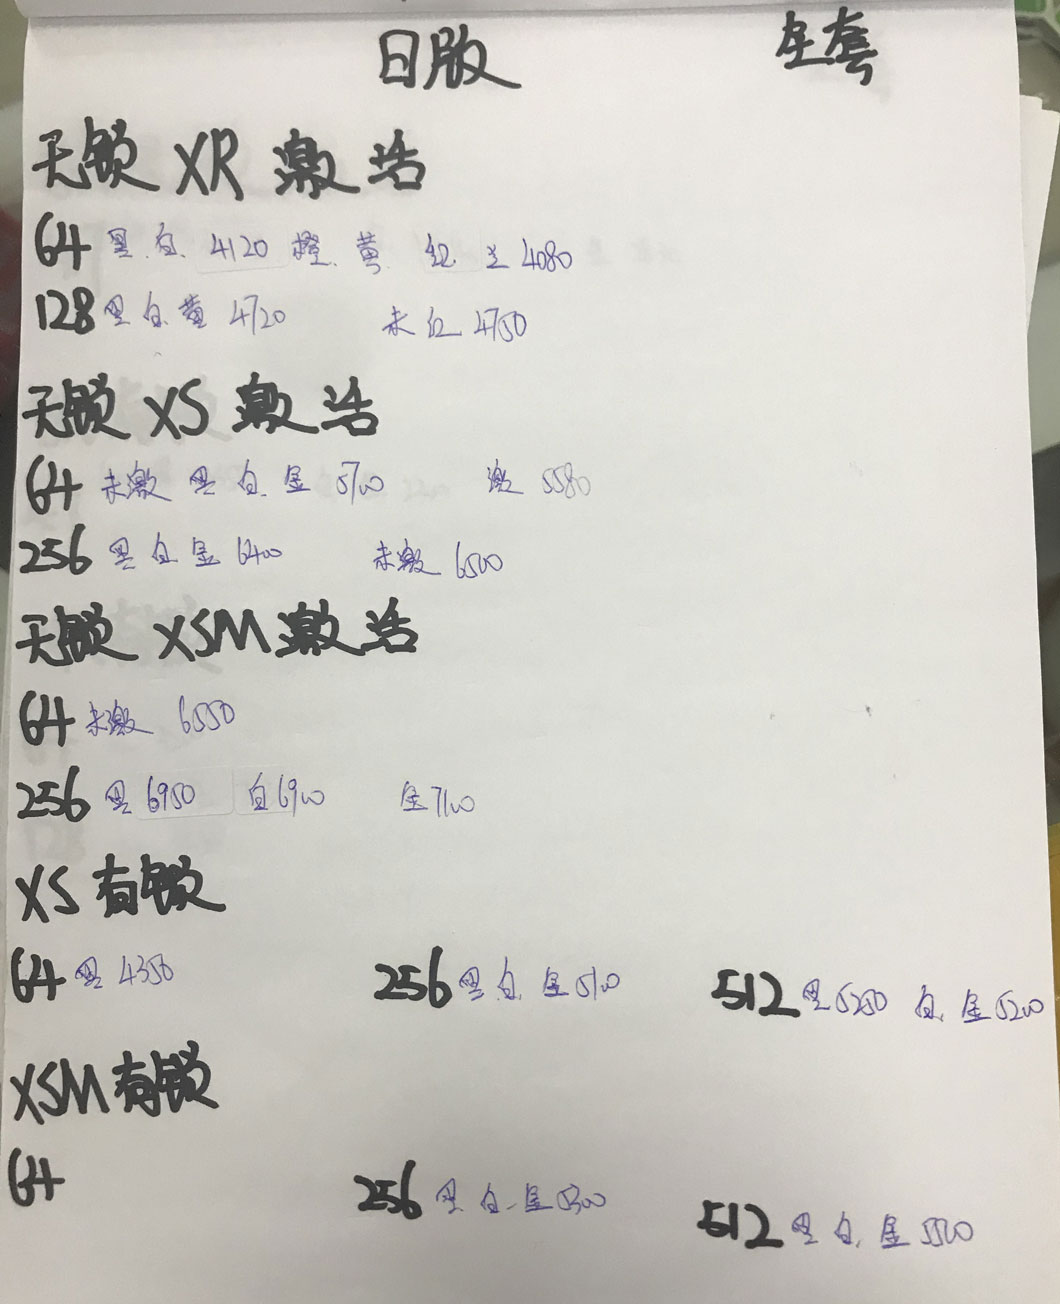 日版 全套
无锁 XR 激活
64 黑.白. 4120 橙.黄. 红 兰 4080
128 黑白黄 4720 未红 4750
无锁 XS 激活
64 未激 黑 白.金 5700 激 5580
256 黑白金 6400 未激 6500
无锁 XSM 激活
64 未激 6550
256 黑 6950 白6900 金7100
XS 有锁
64 黑 4350 256 黑白.金5100 512 黑5250 白.金5200
XSM 有锁
64 256 黑.白.金5300 512 黑 白.金5500